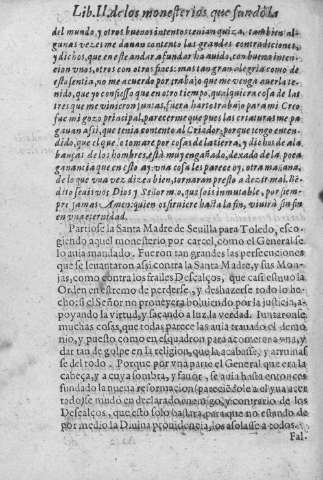 Lib. II. de los monesterios que fundó la
del mundo, y otros buenos intentos tenian quiza, tambien al
gunas vezes me dauan contento las grandes contradiciones,
y dichos, que en este andar a fundar ha auido, con buena inten-
cion vnos, otros con otros fines: mas tan gran alegria como de
esta sentia, no me acuerdo por trabajo que me venga auerla te-
nido, que yo confiesso que en otro tiempo, qualquiera cosa de las
tres que me vinieron juntas, fuera harto trabajo para mi Creo
fue mi gozo principal, parecerme que pues las criaturas me pa
gauan assi, que tenia contento al Criador: porque tengo enten-
dido, que el que lo tomare por cosas de la tierra, y dichos de ala
banças de los hombres, està muy engañado, dexado de la poca
ganancia que en esto ay: vna cosa les parece oy, otra mañana,
de lo que vna vez dizen bien, tornaran presto a dezir mal. Ben
dito seais vos Dios y Señor mio, que sois inmutable, por siem-
pre jamas Amen: quien os siruiere hasta la fin, viuirà sin fin
en vna eternidad.
Partiose la Santa Madre de Seuilla para Toledo, esco-
giendo aquel monesterio por carcel, como el General se
lo auia mandado. Fueron tan grandes las persecuciones
que se leuantaron assi contra la Santa Madre, y sus Mon-
jas, como contra los frailes Descalços, que casi estuuo la
Orden en estremo de perderse, y deshazerse todo lo he-
cho; si el Señor no proueyera boluiendo por la justicia, a-
poyando la virtud, y sacando a luz la verdad. Iuntaronse
muchas cosas, que todas parece las auia trauado el demo
nio, y puesto como en esquadron para acometer a vna, y
dar tan de golpe en la religion, que la acabasse, y arruinas
se del todo. Porque por vna parte el General que era la
cabeça, y a cuya sombra, y fauor, se auia hasta entonces
fundado la nueua reformacion (pareciédole a el yua acer
tado) se mudò en declarado enemigo, y contrario de los
Descalços, que esto solo bastara, para que no estando de
por medio la Diuina prouidencia, los asolasse a todos.
Fal-